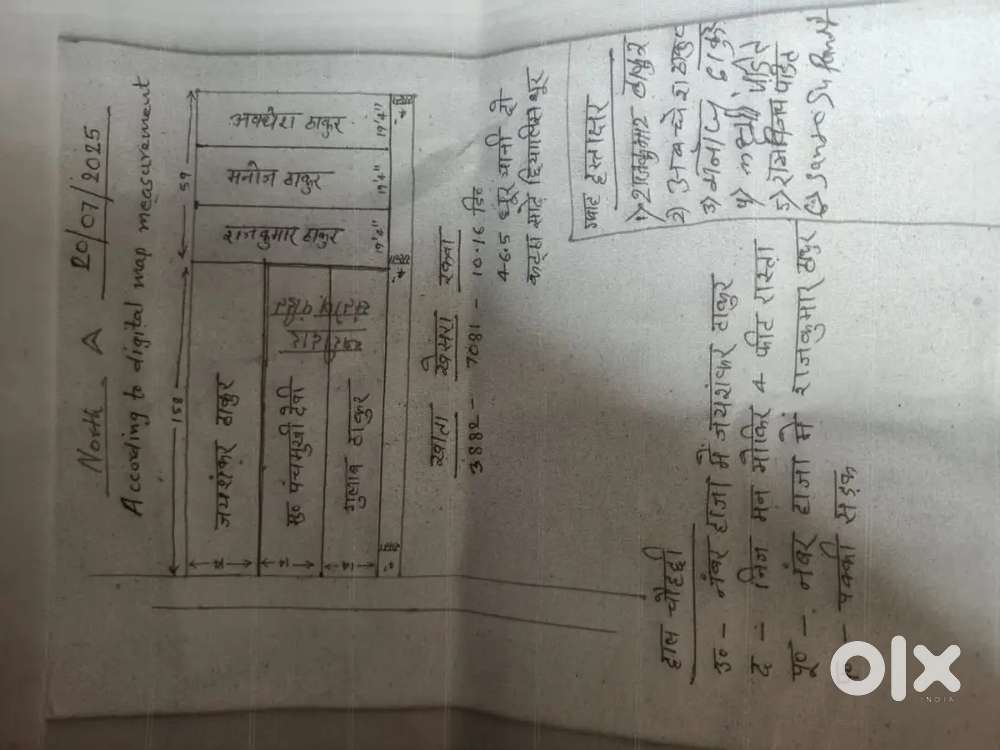 North A 20/07/2025
According to digital map measurement
158
59
जयशंकर ठाकुर
मु० पंचमुखी देवी
गुलाब ठाकुर
राजकुमार ठाकुर
मनोज ठाकुर
अवधेश ठाकुर
19'4"
19'4"
19'4"
खाता खेसरा रकवा
3882 - 7081 - 10.16 डि०
46.5 धूर यानी दो
कट्ठा साढ़े छियालिस धूर
हाल चौहद्दी
उ० - नंबर हाजा में जयशंकर ठाकुर
द - निज मन मोकिर 4 फीट रास्ता
पू० - नंबर हाजा में राजकुमार ठाकुर
प० - पक्की सड़क
गवाह हस्ताक्षर
1) राजकुमार ठाकुर
2) अवधेश ठाकुर
3) मनोज ठाकुर
4) पंडित
5) रामविनय पंडित
olx
INDIA